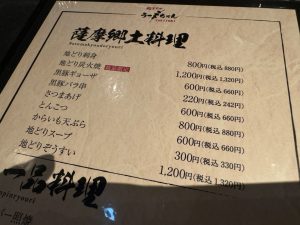 薩摩郷土料理
satsumakyoudoryouri
地どり刺身 800円(税込 880円)
地どり炭火焼 1,200円(税込 1,320円)
黒豚ギョーザ 600円(税込 660円)
黒豚バラ串 220円(税込 242円)
さつまあげ 600円(税込 660円)
とんこつ 800円(税込 880円)
からいも天ぷら 600円(税込 660円)
地どりスープ 300円(税込 330円)
地どりぞうすい 1,200円(税込 1,320円)
一品料理
ippinryouri